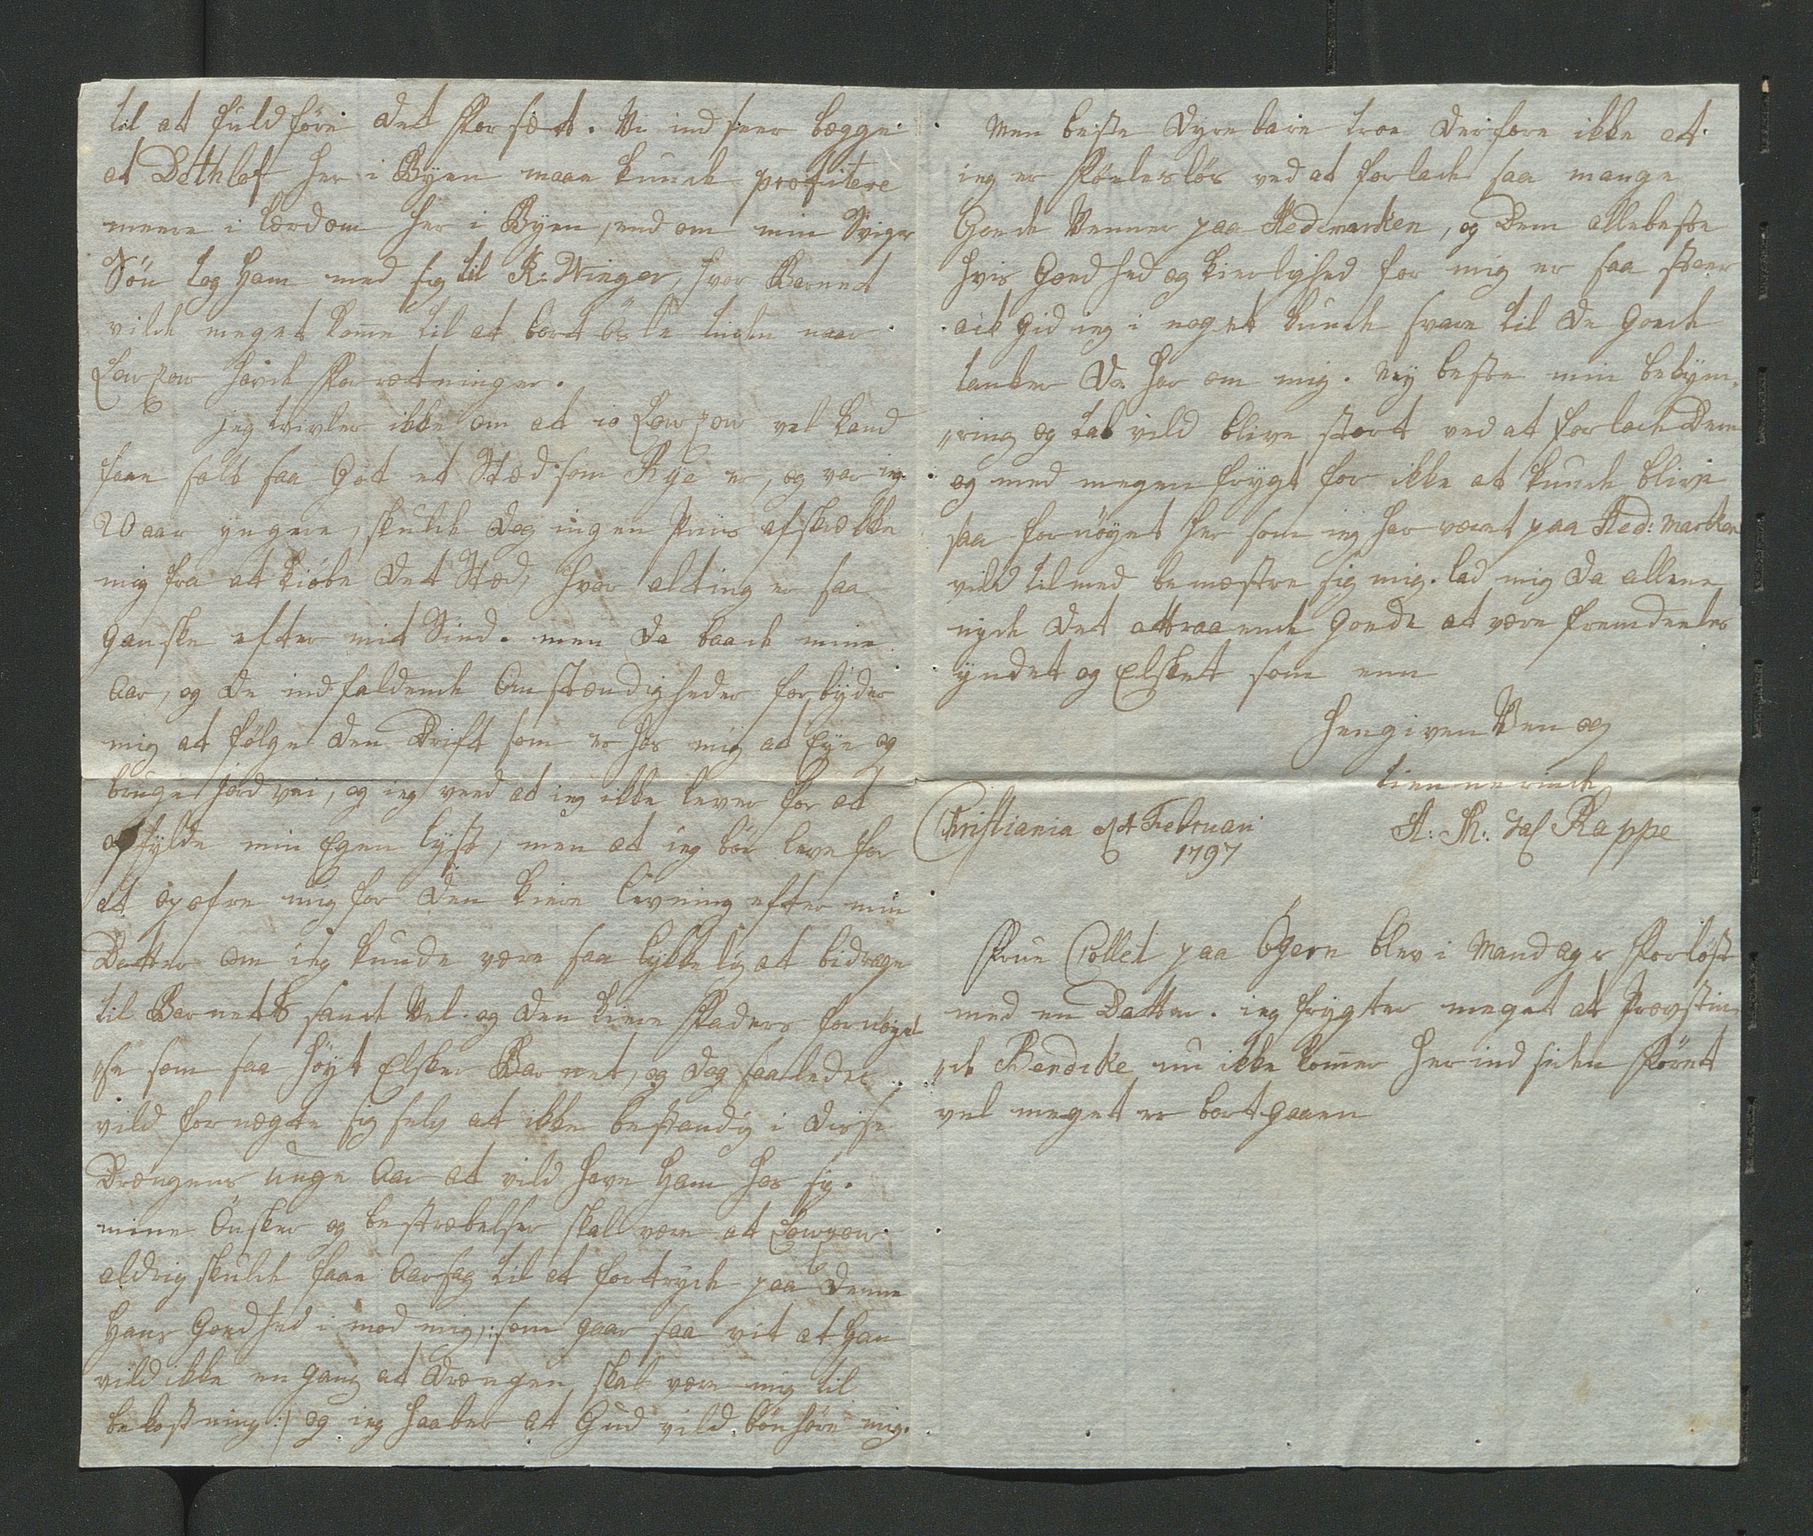 til at fuldføre det Forsæt. Vi indseer begge
at Dethlef her i Byen maae kunde profitere
meere i Lærdom her i Byen, end om min Sviger
Søn tog Ham med sig til K: Winger, hvor Barnet
vilde meget kome til at bortødsle tiden naar
Lowzow havde Forrætninger.
jeg tvivler ikke om at io Lowzow vel kand
faae solt saa Got et Stæd som Rye er, og var ieg
20 aar yngere, skulde dog ingen Priis afskrække
mig fra at kiøbe det Stæd, hvor alting er saa
Ganske efter mit Sind. men da baade mine
Aar, og de indfaldende Omstændigheder forbyder
mig at følge den Drift som er hos mig at Eye og
bruge Jordvei, og ieg veed at ieg ikke lever for at
opfylde min Egen lyst, men at ieg bør leve for
at opofre mig for den kiere levning efter min
Datter om ieg kunde være saa lykkelig at bidrage
til Barnets sande Vel. og den kiere Faders fornøyel
„se som saa høyt Elsker Barnet, og dog saaledes
vild fornægte sig selv at ikke bestandig i disse
Drængens unge Aar at vild have Ham hos sig.
mine Ønsker og bestræbelser skal være at Lowzow
aldrig skulde faae Aarsag til at fortryde paa denne
Hans Goedhed imod mig |: som gaar saa vit at Han
vild ikke en gang at Drængen skal være mig til
bekostning :| og ieg haaber at Gud vild bønhøre mig.
Men beste dyrebare troe derfore ikke at
ieg er Føelesløs ved at forlade saa mange
Goede Venner paa Hedemarken, og Dem allebeste
hvis Goedhed og kierlighed for mig er saa stoer
ack Gid ieg i noget kunde svare til de Goede
tanker De har om mig. Ney beste min bekym„
„ring og tab vild blive stort ved at forlade Dem
og med megen frygt for ikke at kunde blive
saa fornøyet her som ieg har været paa Hed: marken
vild tilmed bemæstre sig mig. lad mig da allene
nyde det attraaende Goede at være fremdeeles
yndet og Elsket som een
hengiven Ven og
tiennerinde
Christiania Februari
1797
H: R: Rappe
Frue Collet paa Øgern blev i Mandags Forløst
med en Datter. ieg frygter meget at Provstin„
„de Bendeke nu ikke kom̄er her ind siden Føret
vel meget er bortgaaen